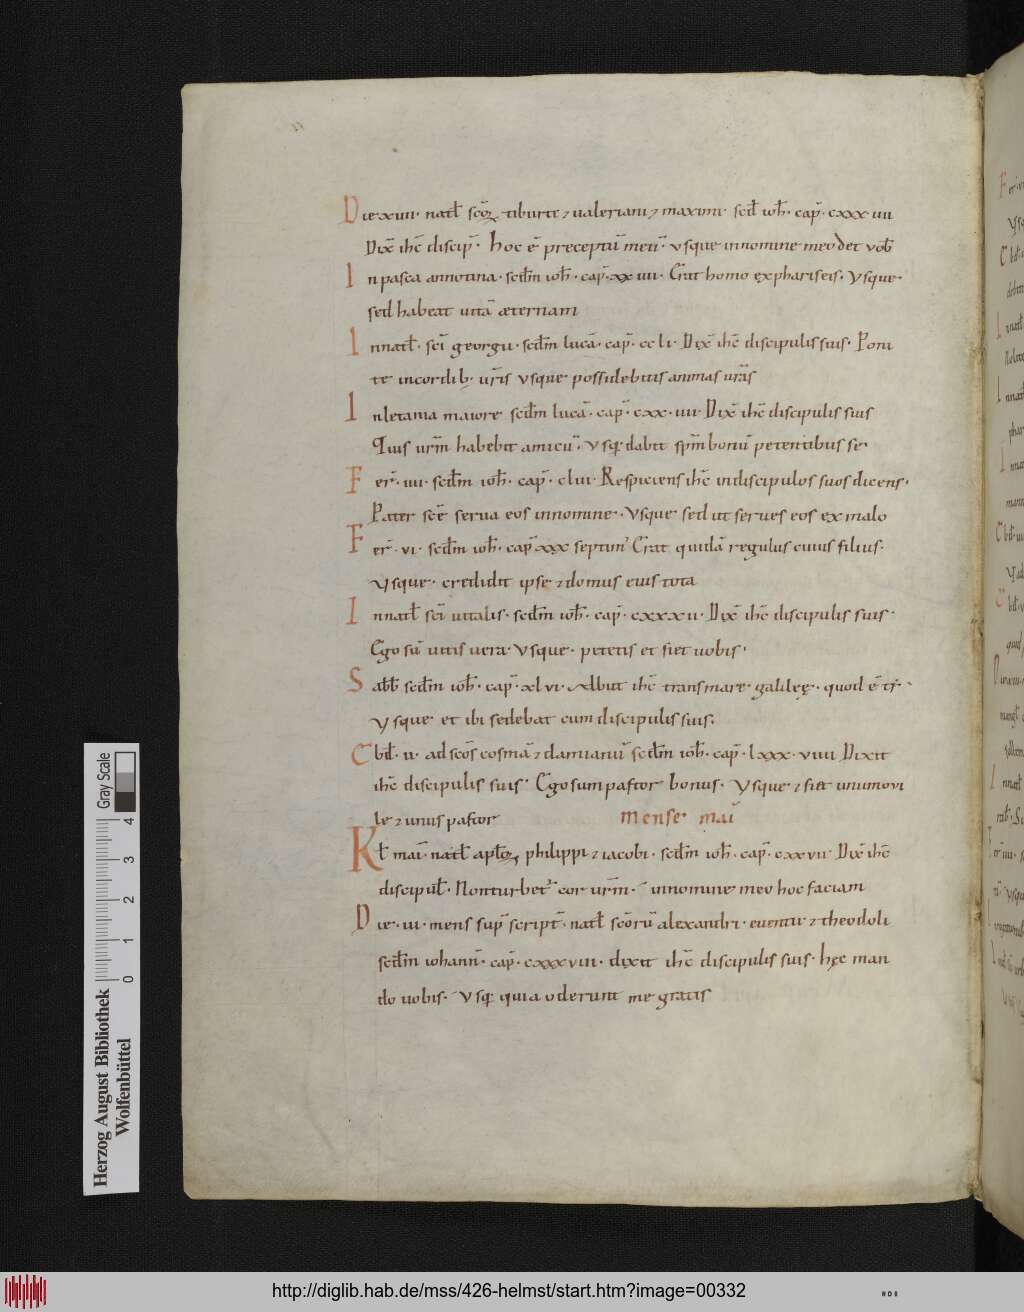 Die xuii· natł scōꝝ tiburtii ⁊ ualeriani ⁊ maximi· scđ ioh̄· cap̄· cxxx iiii
Dix̄ ih̄c discip̄· hoc ē preceptū meū· vsque in nomine meo det vob̄
In pasca annotina· scđm ioh̄· cap̄· xx iiii· Erat homo ex phariseis· Vsque·
sed habeat uitā æternam
In natł· sc̄i georgii· scđm lucā· cap̄· cc li· Dix̄ ih̄c discipulis suis· Poni
te in cordib; ur̄is vsque possidebitis animas ur̄as
In letania maiore scđm lucā· cap̄· cxx· iiii· Dix̄ ih̄c discipulis suis
Quis urm̄ habebit amicū· vsq; dabit spm̄ bonū petentibus se·
Fer̄· iiii· scđm ioh̄· cap̄· clui· Respiciens ih̄c in discipulos suos dicens·
Pater sc̄e serua eos in nomine· Vsque sed ut serues eos ex malo
Fer̄· vi· scđm ioh̄· cap̄ xxx septim̄ Erat quidā regulus cuius filius·
Vsque· credidit ipse ⁊ domus eius tota
In natł sc̄i uitalis· scđm ioh̄· cap̄· cxxxu· Dix̄ ih̄c discipulis suis·
Ego sū uitis uera· Vsque· petetis et fiet uobis·
Sabb̄ scđm ioh̄· cap̄· xlvi· Abiit ih̄c trans mare galileę· quod ē tȳ·
Vsque et ibi sedebat cum discipulis suis·
Ebđ· ii· ad scōs cosmā ⁊ damianū scđm ioh̄· cap̄· lxxx· viiii Dixit
ih̄c discipulis suis· Ego sum pastor bonus· Vsque ⁊ fiet unum ovi
le ⁊ unus pastor mense· maī
Kł mai· natł aptōꝝ philippi ⁊ iacobi· scđm ioh̄· cap̄· cxxvii· Dix̄ ih̄c
discipuł· Non turbet̄ cor urm̄· in nomine meo hoc faciam
Die· iii· mens sup̄ script̄· natł scōrū alexandri· euentii ⁊ theodoli
scđm iohann̄· cap̄· cxxxviii· dixit ih̄c discipulis suis· hęc man
do uobis· Vsq; quia oderunt me gratis
Herzog August Bibliothek
Wolfenbüttel
0 1 2 3 4
Gray Scale
http://diglib.hab.de/mss/426-helmst/start.htm?image=00332